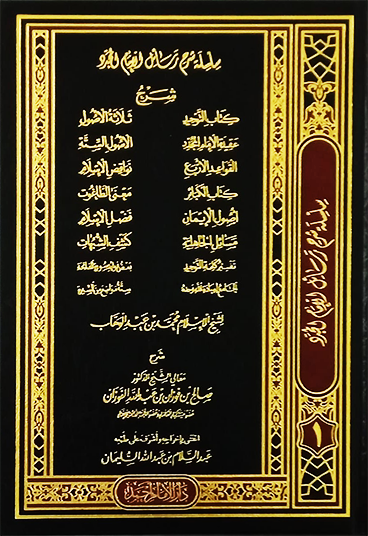 سلسلة شرح رسائل الإمام المجدد
شرح
كتاب التوحيد ثلاثة الأصول
عقيدة الإمام المجدد الأصول الستة
القواعد الأربع نواقض الإسلام
كتاب الكبائر معنى الطاغوت
أصول الإيمان فضل الإسلام
مسائل الجاهلية كشف الشبهات
تفسير كلمة التوحيد
لشيخ الإسلام محمد بن عبد الوهاب
شرح
معالي الشيخ الدكتور
صالح بن فوزان بن عبد الله الفوزان
اعتنى بإخراجه وأشرف على طبعه
عبد السلام بن عبد الله السليمان
دار الإمام أحمد
سلسلة شرح رسائل الإمام المجدد
١